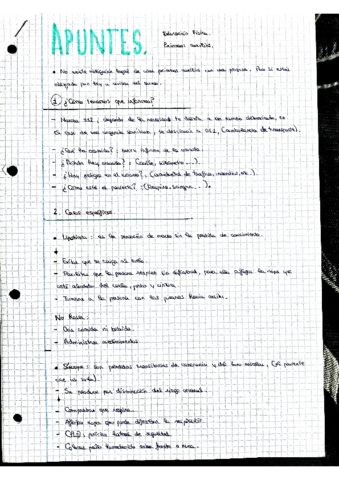 APUNTES.
Educación Física.
Primeros auxilios.
• No existe obligación legal de usar primeros auxilios con una propina. Pero sí estás
obligado por ley a avisar del
1. ¿Cómo tenemos que informar?
- Número 112, depende de la necesidad te deriva a un número determinado, en
el caso de una urgencia sanitaria, se derivará a 012, (Cuidadora de transporte).
- ¿Qué ha ocurrido?: breve informe de lo ocurrido.
- ¿Dónde hay ocurrido?: (calle, kilómetro...).
- ¿Hay peligro en el entorno?, (cantidad de tráfico, incendio, etc.).
- ¿Cómo está el paciente?: (Respira, sangra,...).
2. Casos específicos
• Lipotimia: es la sensación de mareo sin la pérdida de conocimiento.
- Evitar que se caiga al suelo.
- Facilitar que la persona respire sin dificultad, para ello afloja la ropa que
esté alrededor del cuello, pecho y cintura.
- Tumbar a la persona con las piernas hacia arriba.
No hacer:
- Dar comida ni bebida.
- Administrar medicamentos
• Síncope: Son pérdidas transitorias de conciencia y del tono muscular, (el paciente
cae al suelo).
- Se produce por disminución del riego cerebral.
- Comprobar que respira.
- Aflojar ropa que pueda dificultar la respiración.
- (PLS), posición lateral de seguridad.
- Colocar paño humedecido sobre frente o nuca.